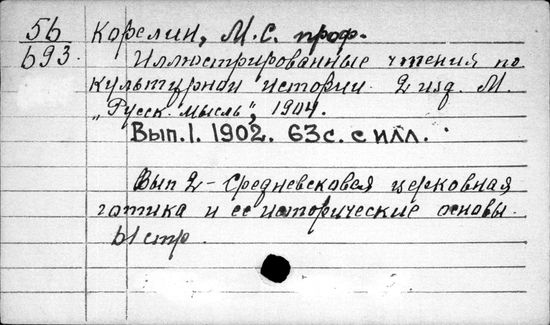 56 Корелин, М.С. проф.
693. Иллюстрированные чтения по
культурной истории. 2 изд. М.
„Русск. мысль", 1904.
Вып. 1. 1902. 63 с. с илл.
Вып 2 - Средневековая церковная
готика и ее исторические основы.
61 стр.